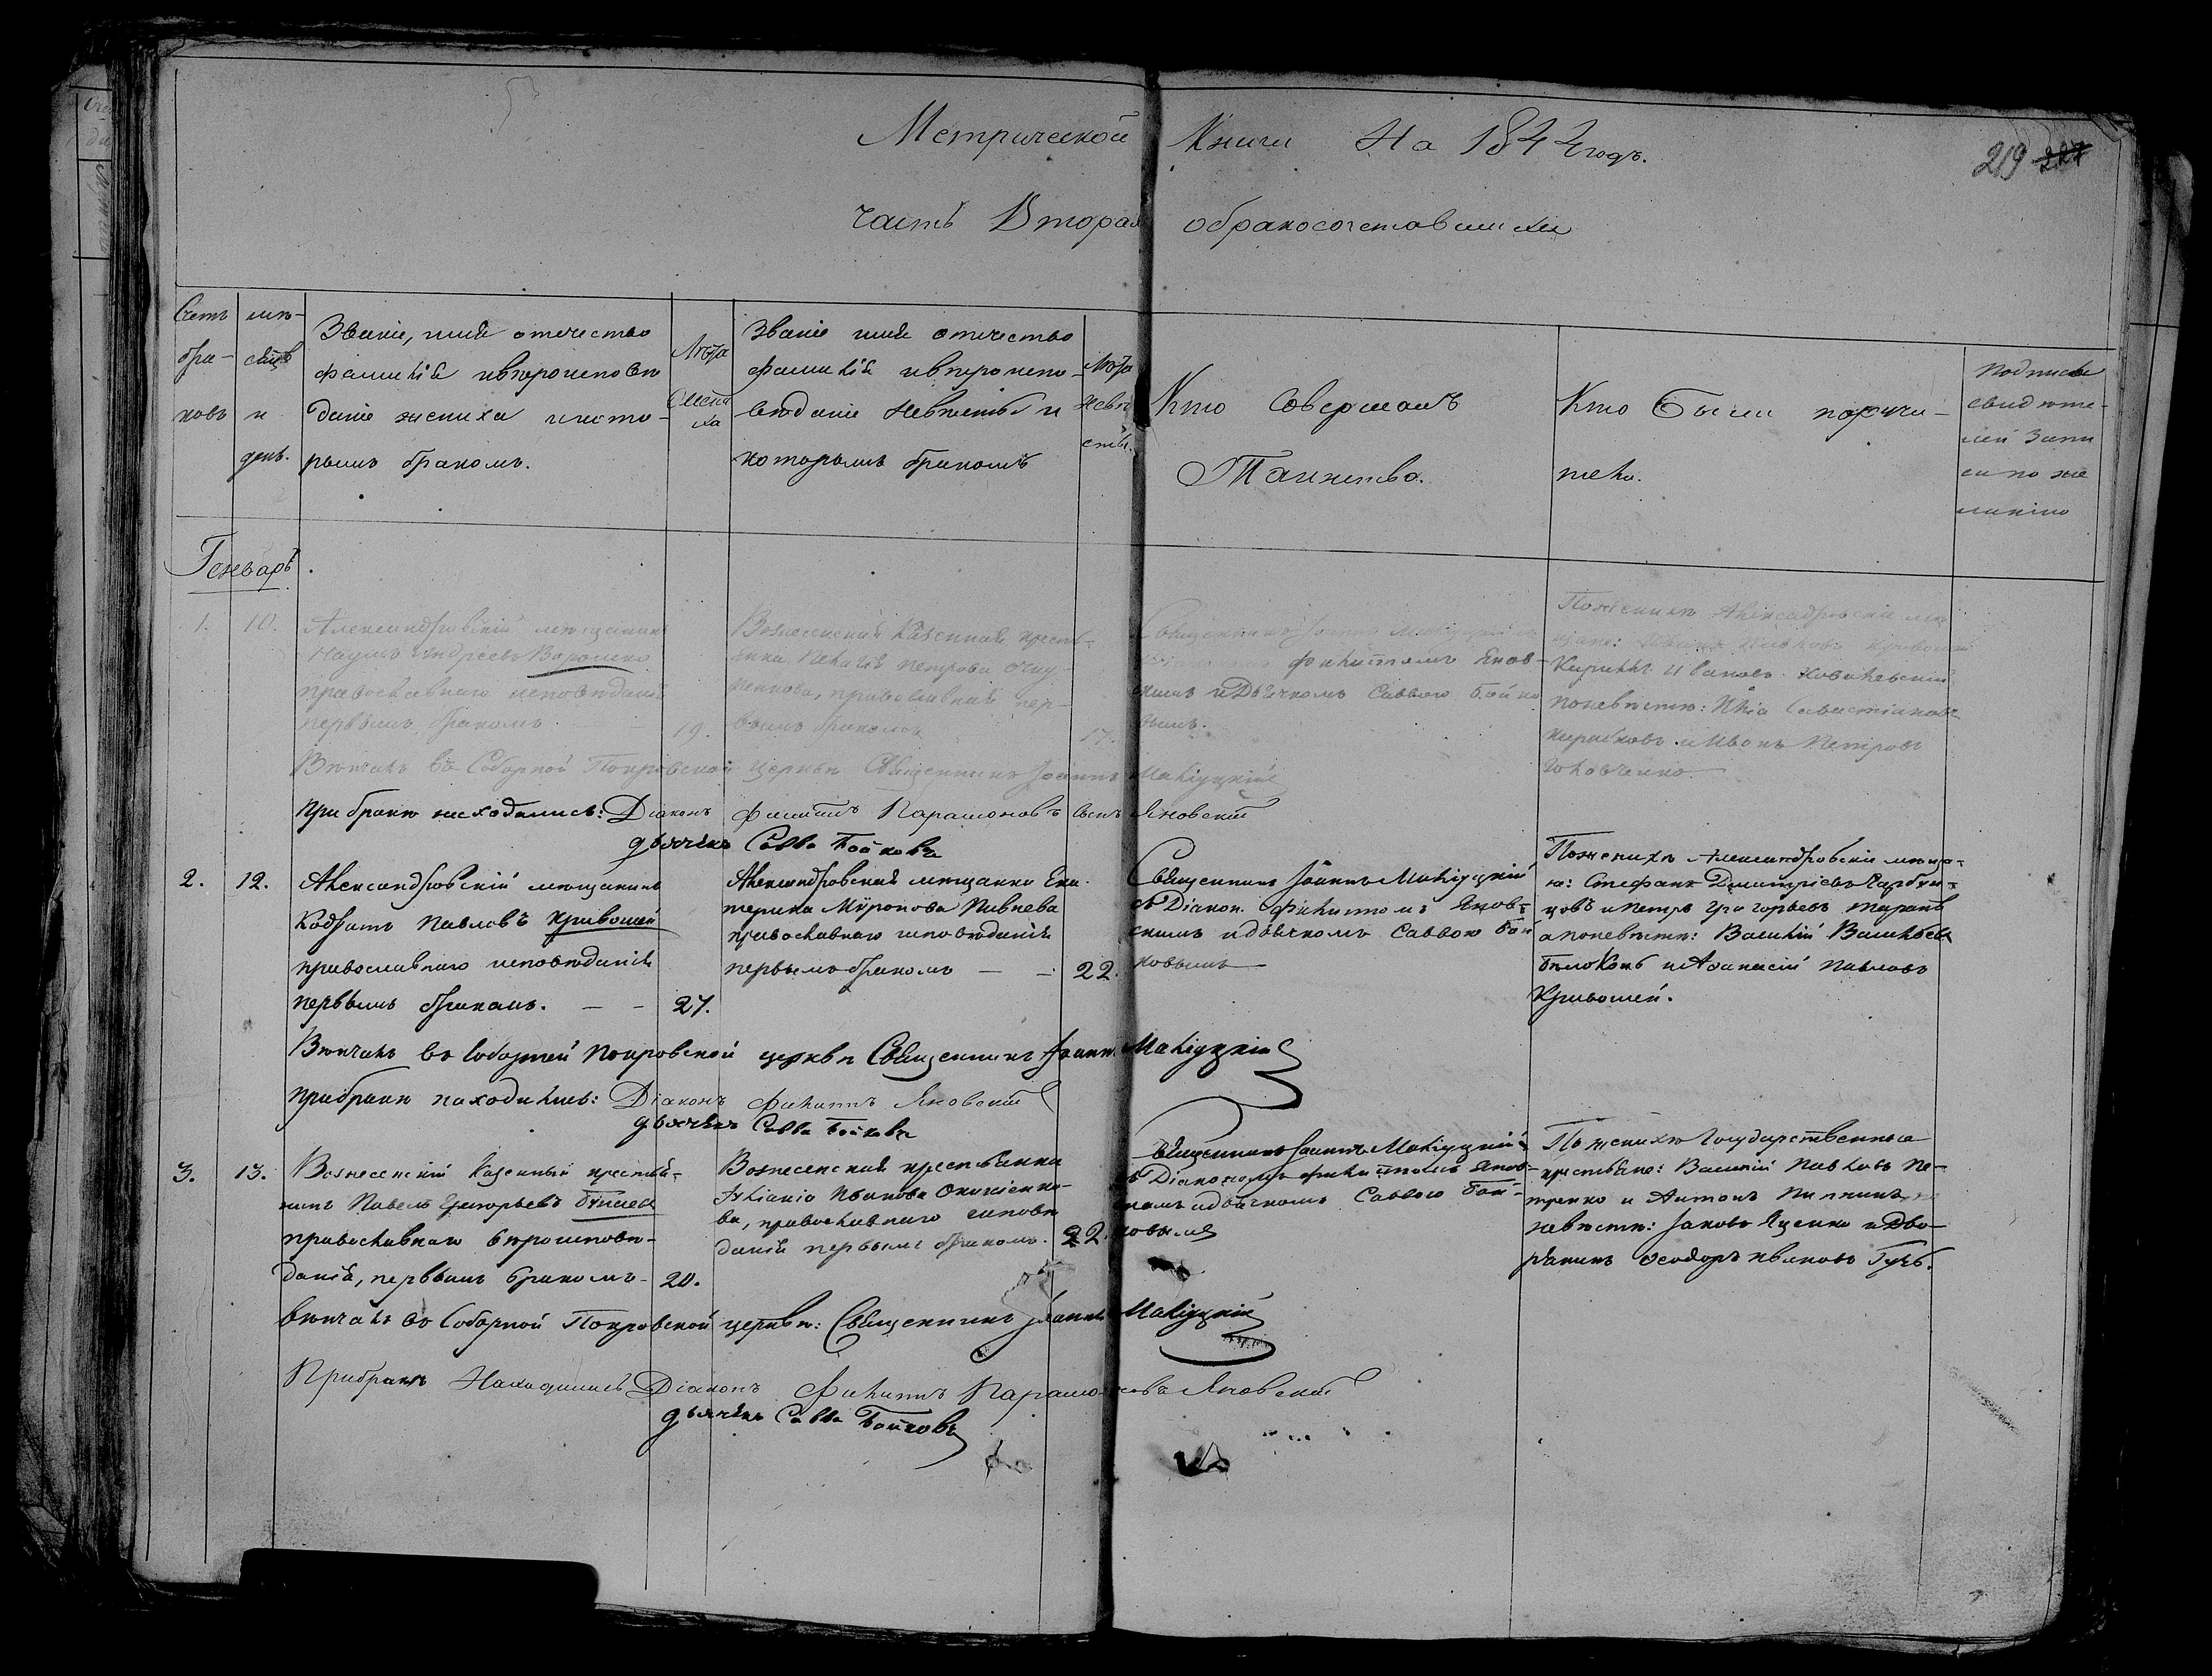 Метрической Книги На 1844 годъ.
219 227
часть Вторая обракосочетавшихся
Счетъ браковъ
мѣсяцъ и день.
Званіе, имя отечество
фамилія ивѣроисповѣ
даніе жениха икото-
рымъ бракомъ.
Лѣта жениха
Званіе имя отечество
фамилія ивѣроиспо-
вѣданіе невѣсты и
которымъ бракомъ
Лѣта невѣсты.
Кто Совершалъ
Таинство.
Кто были поручи-
тели.
Подписи
свидѣте-
лей запи
си по же
ланію
Генварь.
1. 10.
Александровскій мѣщанинъ
Наумъ Андреевъ
православнаго исповѣданія
первымъ бракомъ. 19.
Вознесенская Казенная кресть-
янка Пелагія Петрова
православная пер-
вымъ бракомъ 17.
Священникъ Іоаннъ
Филиппомъ Янов-
скимъ иДьячкомъ Саввою Бойко
вымъ.
Поженихѣ Александровскіе мѣ
щане: Иванъ Павловъ
Кириллъ Ивановъ
поневѣстѣ: Илія
иИванъ Петровъ
Вѣнчалъ въ Соборной Покровской церкви Священникъ Іоаннъ
при бракѣ находились: Діаконъ Филиппъ Парамоновъ сынъ Яновскій
дьячекъ Савва Бойковъ
2. 12.
Александровскій мѣщанинъ
Кодратъ Павловъ Кривошей
православнаго исповѣданія
первымъ бракомъ. — — 27.
Александровская мѣщанка Ека-
терина Мѵронова Пивнева
православнаго исповѣданія
первымъ бракомъ — — 22.
Священникъ Іоаннъ
съ Діакон. Филиппомъ Янов-
скимъ идьячкомъ Саввою Бой
ковымъ —
Поженихѣ Александровскіе мѣща-
не: Стефанъ Димитріевъ
иПетръ Григорьевъ Таранъ
апоневѣстѣ: Василій Васильевъ
Бѣлоконь иАѳанасій Павловъ
Кривошей.
Вѣнчалъ въ Соборной Покровской церкви Священникъ Іоаннъ
прибракѣ находились: Діаконъ Филиппъ Яновскій
дьячекъ Савва Бойковъ
3. 13.
Вознесенскій Казенный крестья-
нинъ Павелъ Григорьевъ
православнаго вѣроисповѣ-
данія, первымъ бракомъ- 20.
Вознесенская крестьянка
Іуліанія Иванова
ва, православнаго исповѣ
данія первымъ бракомъ. 22.
Священникъ Іоаннъ
съ Діакономъ Филиппомъ Янов-
скимъ идьячкомъ Саввою Бой-
ковымъ
По женихѣ Государственные
крестьяне: Василій Павловъ Пе-
тренко и Антонъ
невѣстѣ: Іаковъ Яценко иДво-
рянинъ Ѳеодоръ Ивановъ
вѣнчалъ въ Соборной Покровской церкви: Священникъ Іоаннъ
Прибракѣ Находились Діаконъ Филиппъ Парамоновъ Яновскій
дьячекъ Савва Бойковъ